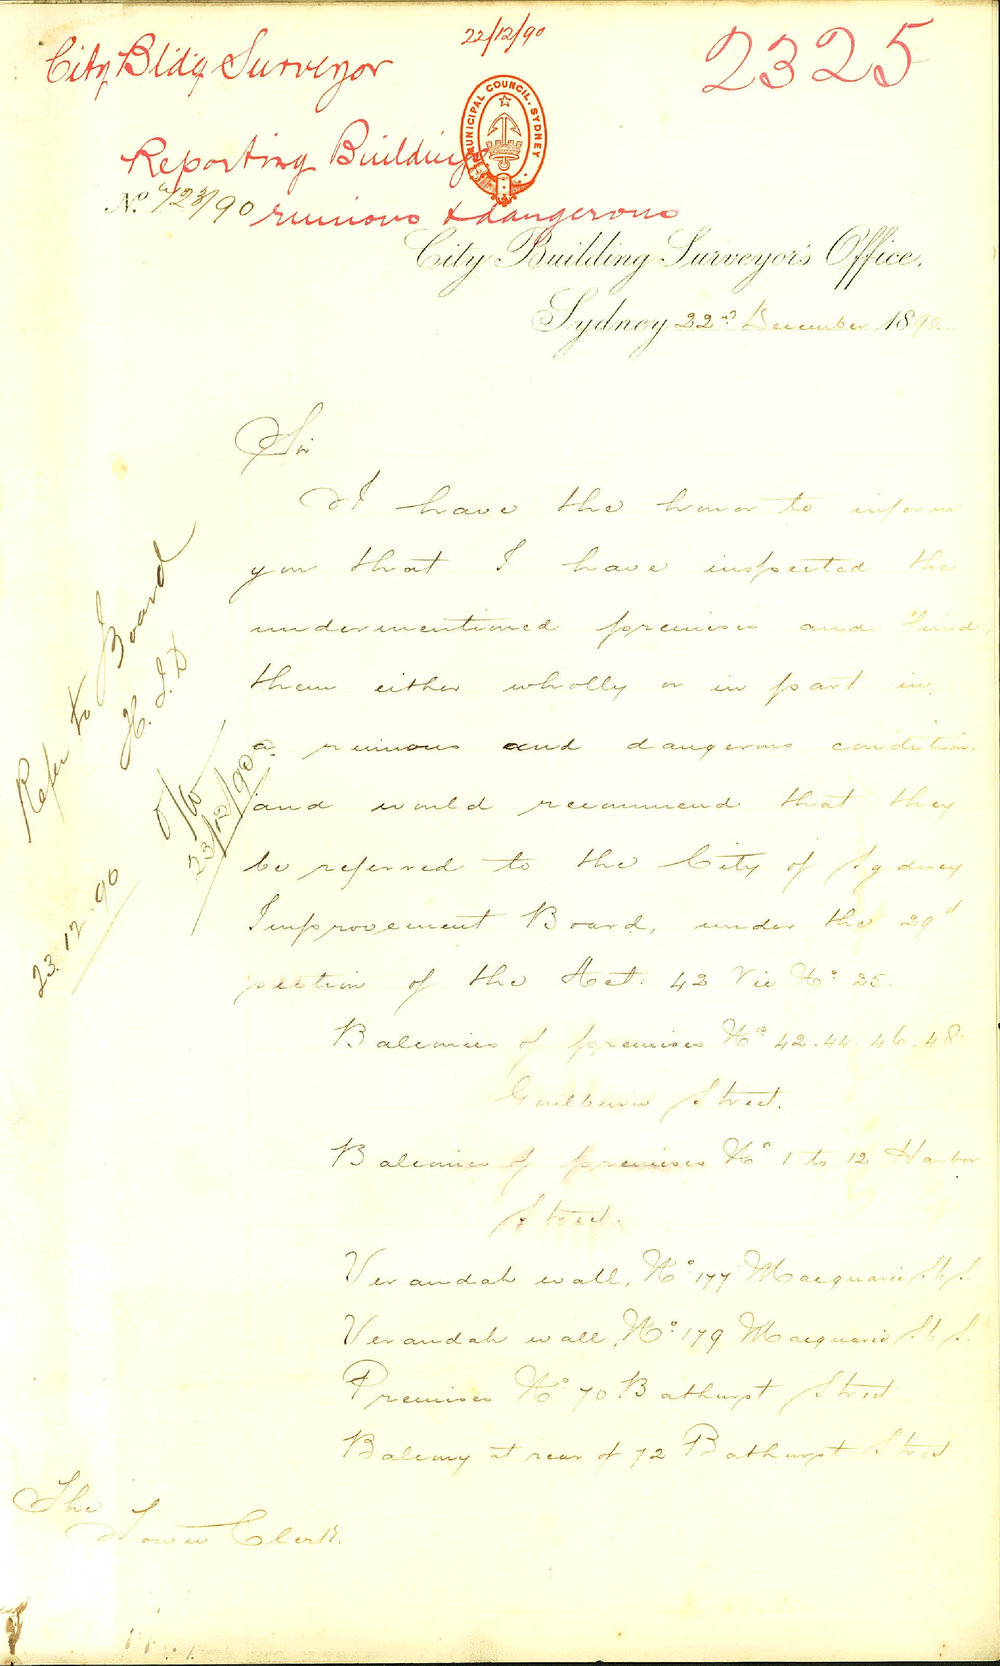 22/12/90
2325
City Bldg Surveyor
MUNICIPAL COUNCIL. SYDNEY
Reporting Buildings
No. /90 ruinous & dangerous
City Building Surveyor's Office.
Sydney 22nd December 1890
Sir
I have the honor to inform
you that I have inspected the
undermentioned premises and find
them either wholly or in part in
a ruinous and dangerous condition,
and would recommend that they
be referred to the City of Sydney
Improvement Board, under the 29d
section of the Act. 42 Vic No. 25.
Balconies of premises Nos 42.44.46.48
Goulburn Street.
Balconies of premises Nos 1 to 12 Harbor
Street.
Verandah wall, No. 177 Macquarie St. S.
Verandah wall, No. 179 Macquarie St. S.
Premises No. 70 Bathurst Street
Balcony at rear of 72 Bathurst Street
The
Town Clerk.
Refer to Board
23.12.90
23/12/90